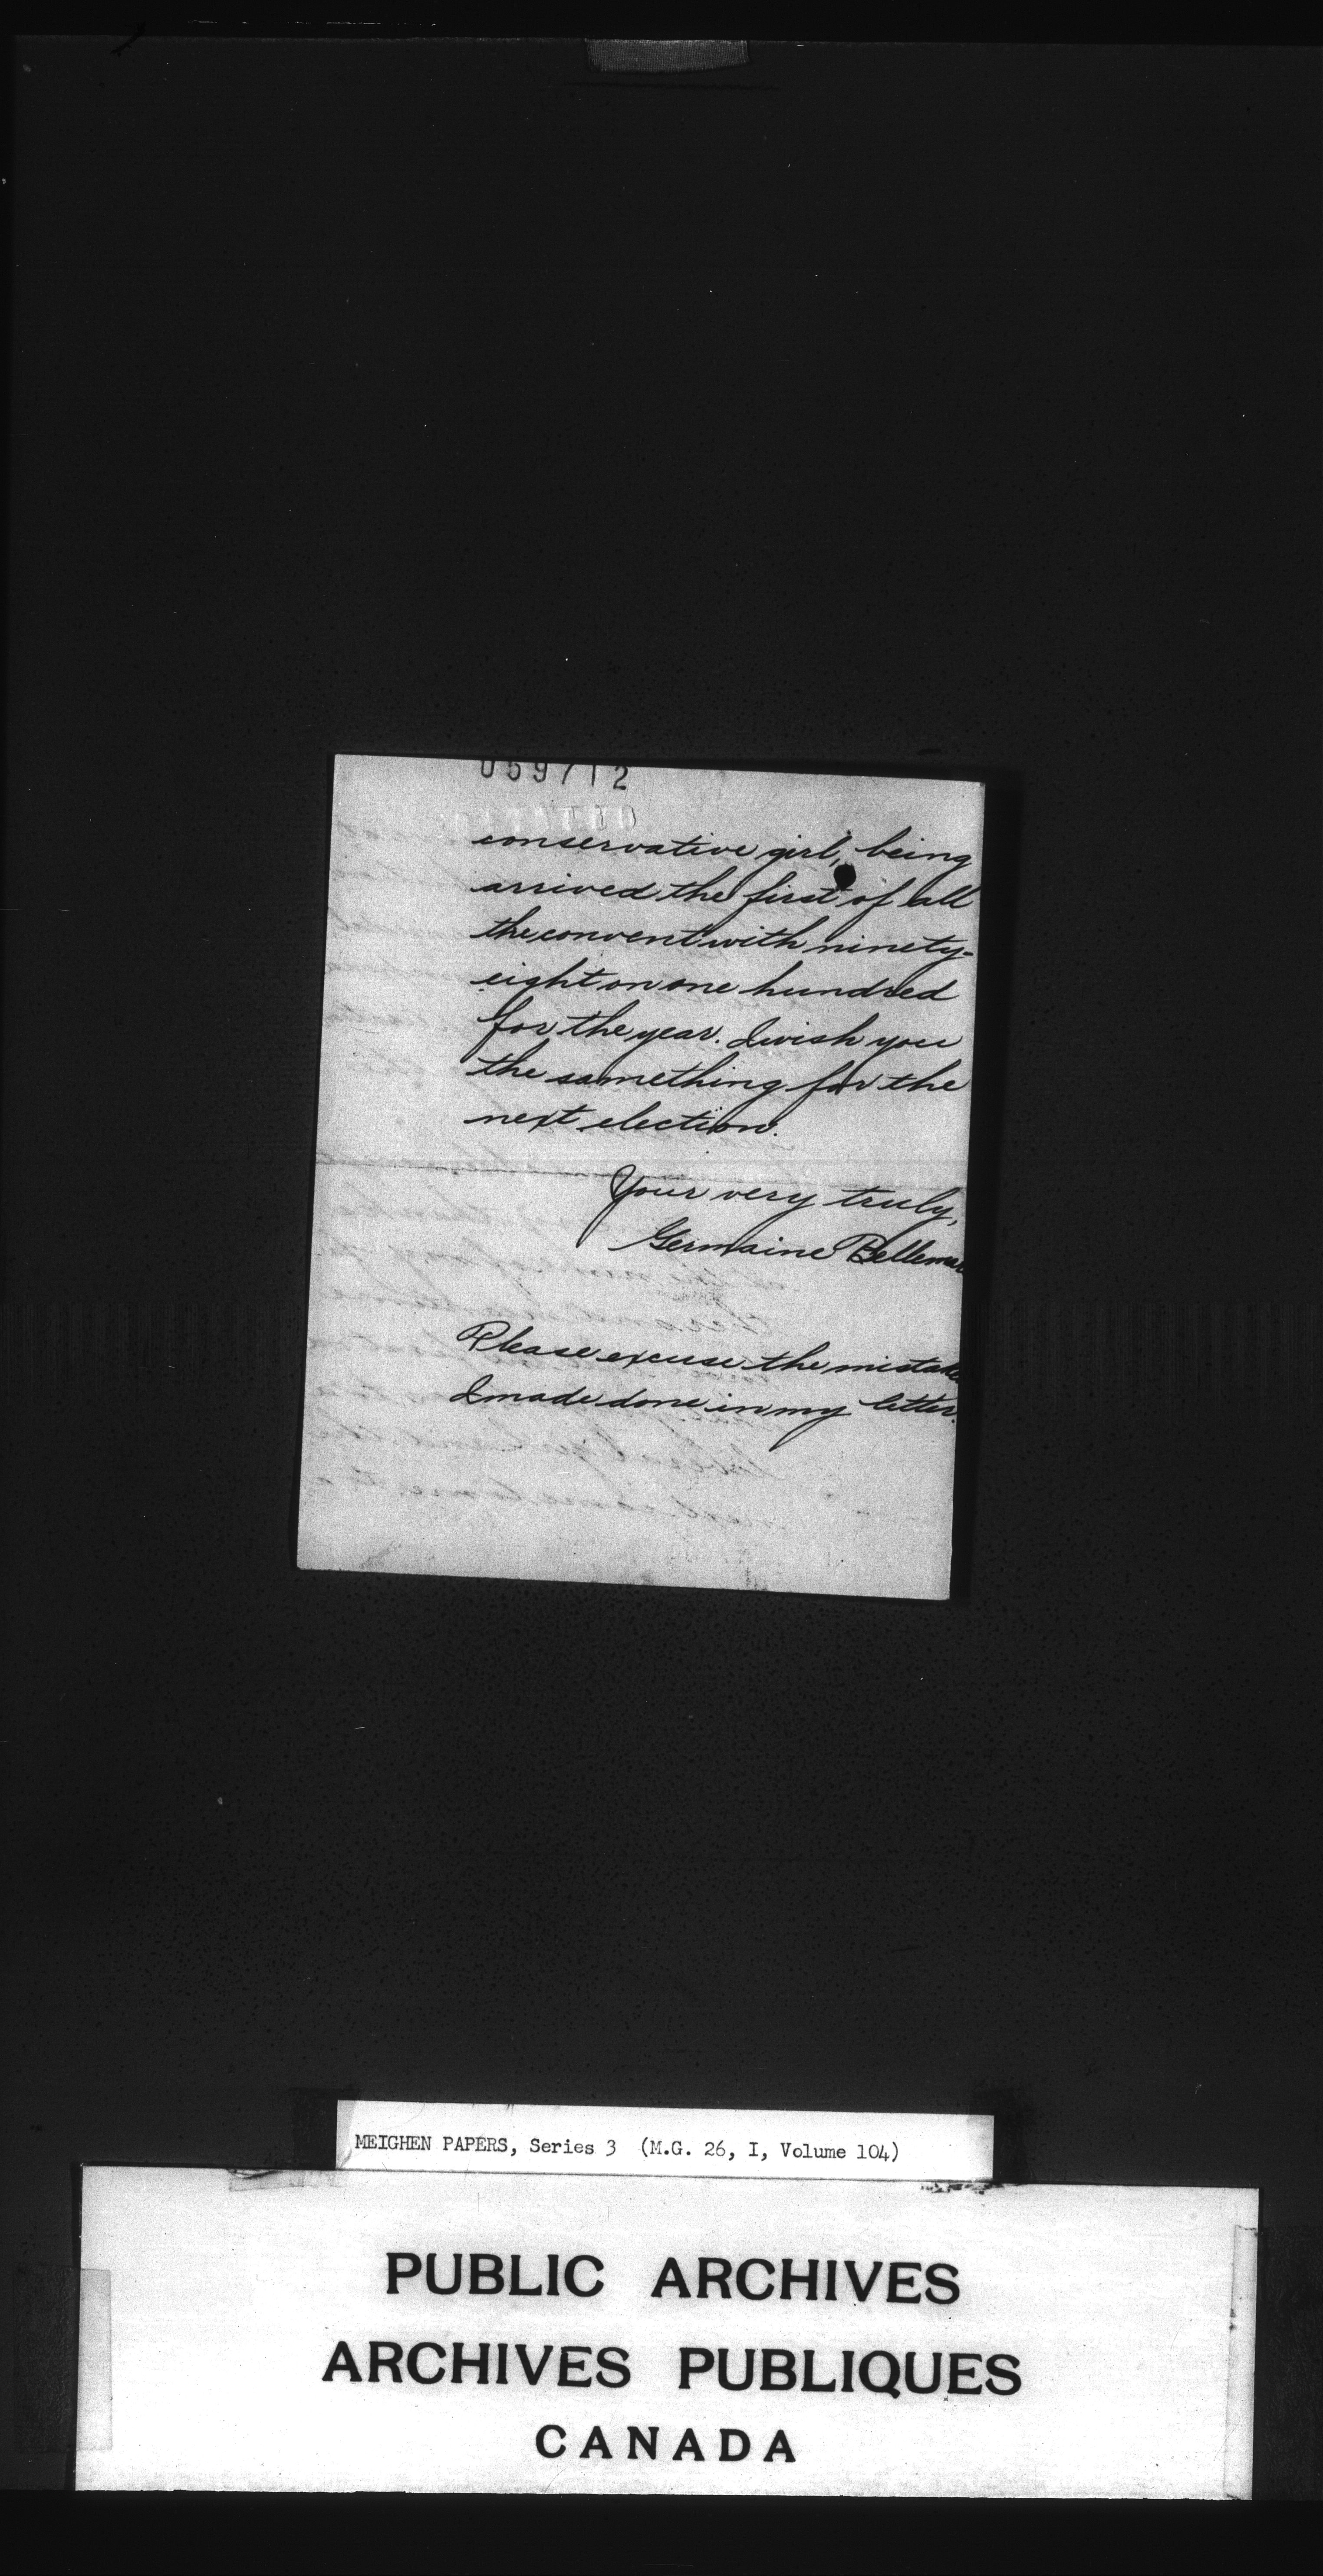 059712
conservative girl, being
arrived the first of all
the convent with ninety-
eight on one hundred
for the year. I wish you
the something for the
next election.
Your very truly,
Germaine Bellemar
Please excuse the mistake
I made done in my letter.
MEIGHEN PAPERS, Series 3 (M.G. 26, I, Volume 104)
PUBLIC ARCHIVES
ARCHIVES PUBLIQUES
CANADA